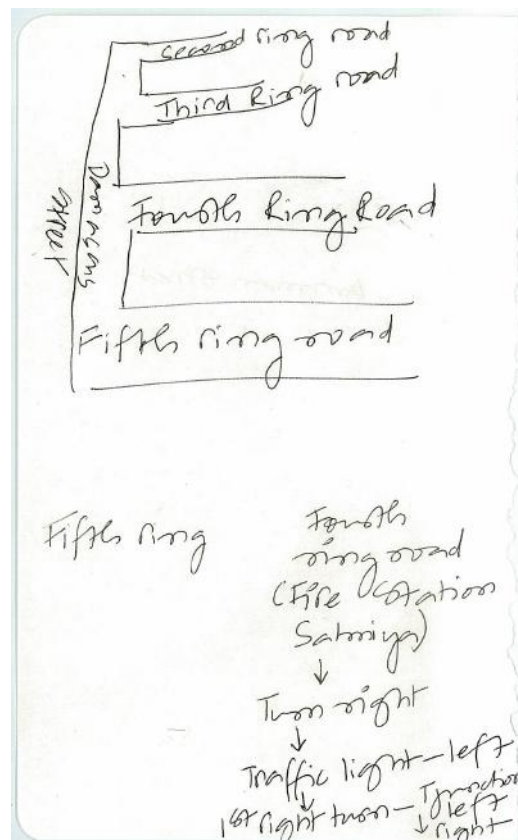 Second ring road
Third Ring road
Damascus
Street
Fourth Ring Road
Fifth ring road
Fifth ring
Fourth
ring road
(Fire Station
Salmiya)
↓
Turn right
↓
Traffic light - left
↓
1st right turn - Tjunction
left
↓ right